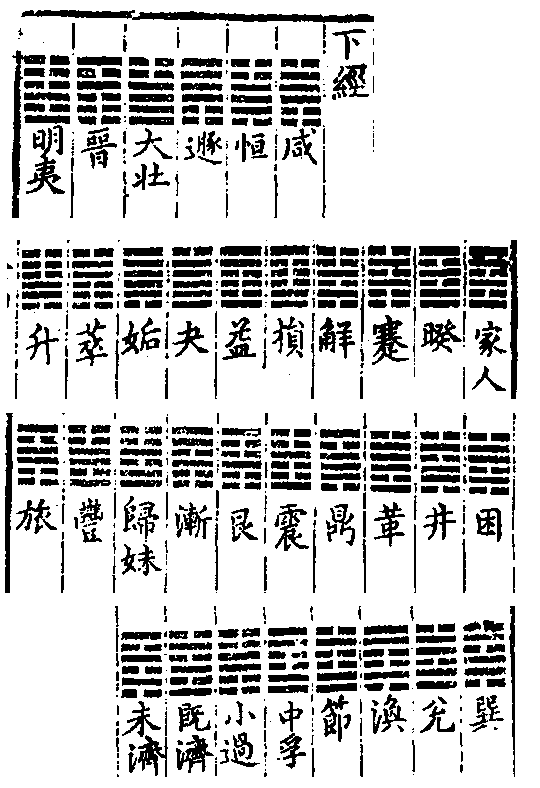 下經
咸
恒
遯
大壯
晉
明夷
家人
暌
蹇
解
損
益
夬
姤
萃
升
困
井
革
鼎
震
艮
漸
歸妹
豐
旅
巽
兌
渙
節
中孚
小過
既濟
未濟